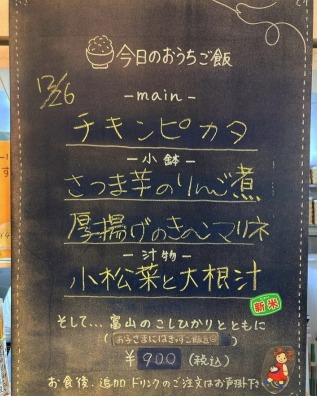 今日のおうちご飯
12/26
-main-
チキンピカタ
-小鉢-
さつま芋のりんご煮
厚揚げのきのこマリネ
-汁物-
小松菜と大根汁
新米
そして…富山のこしひかりとともに
¥900(税込)
お食後、追加ドリンクのご注文はお声掛け下